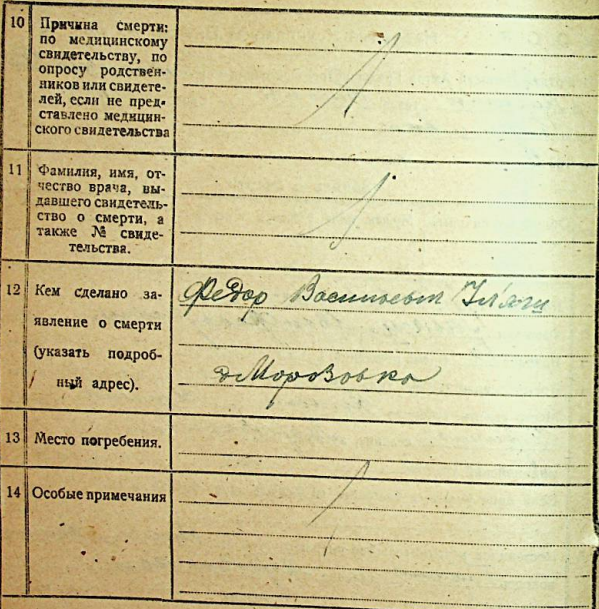 10 Причина смерти:
по медицинскому
свидетельству, по
опросу родствен-
ников или свидете-
лей, если не пред-
ставлено медицин-
ского свидетельства
11 Фамилия, имя, от-
чество врача, вы-
давшего свидетель-
ство о смерти, а
также № свиде-
тельства.
12 Кем сделано за-
явление о смерти
(указать подроб-
ный адрес).
Федор Васильевич
д Морозовка
13 Место погребения.
14 Особые примечания